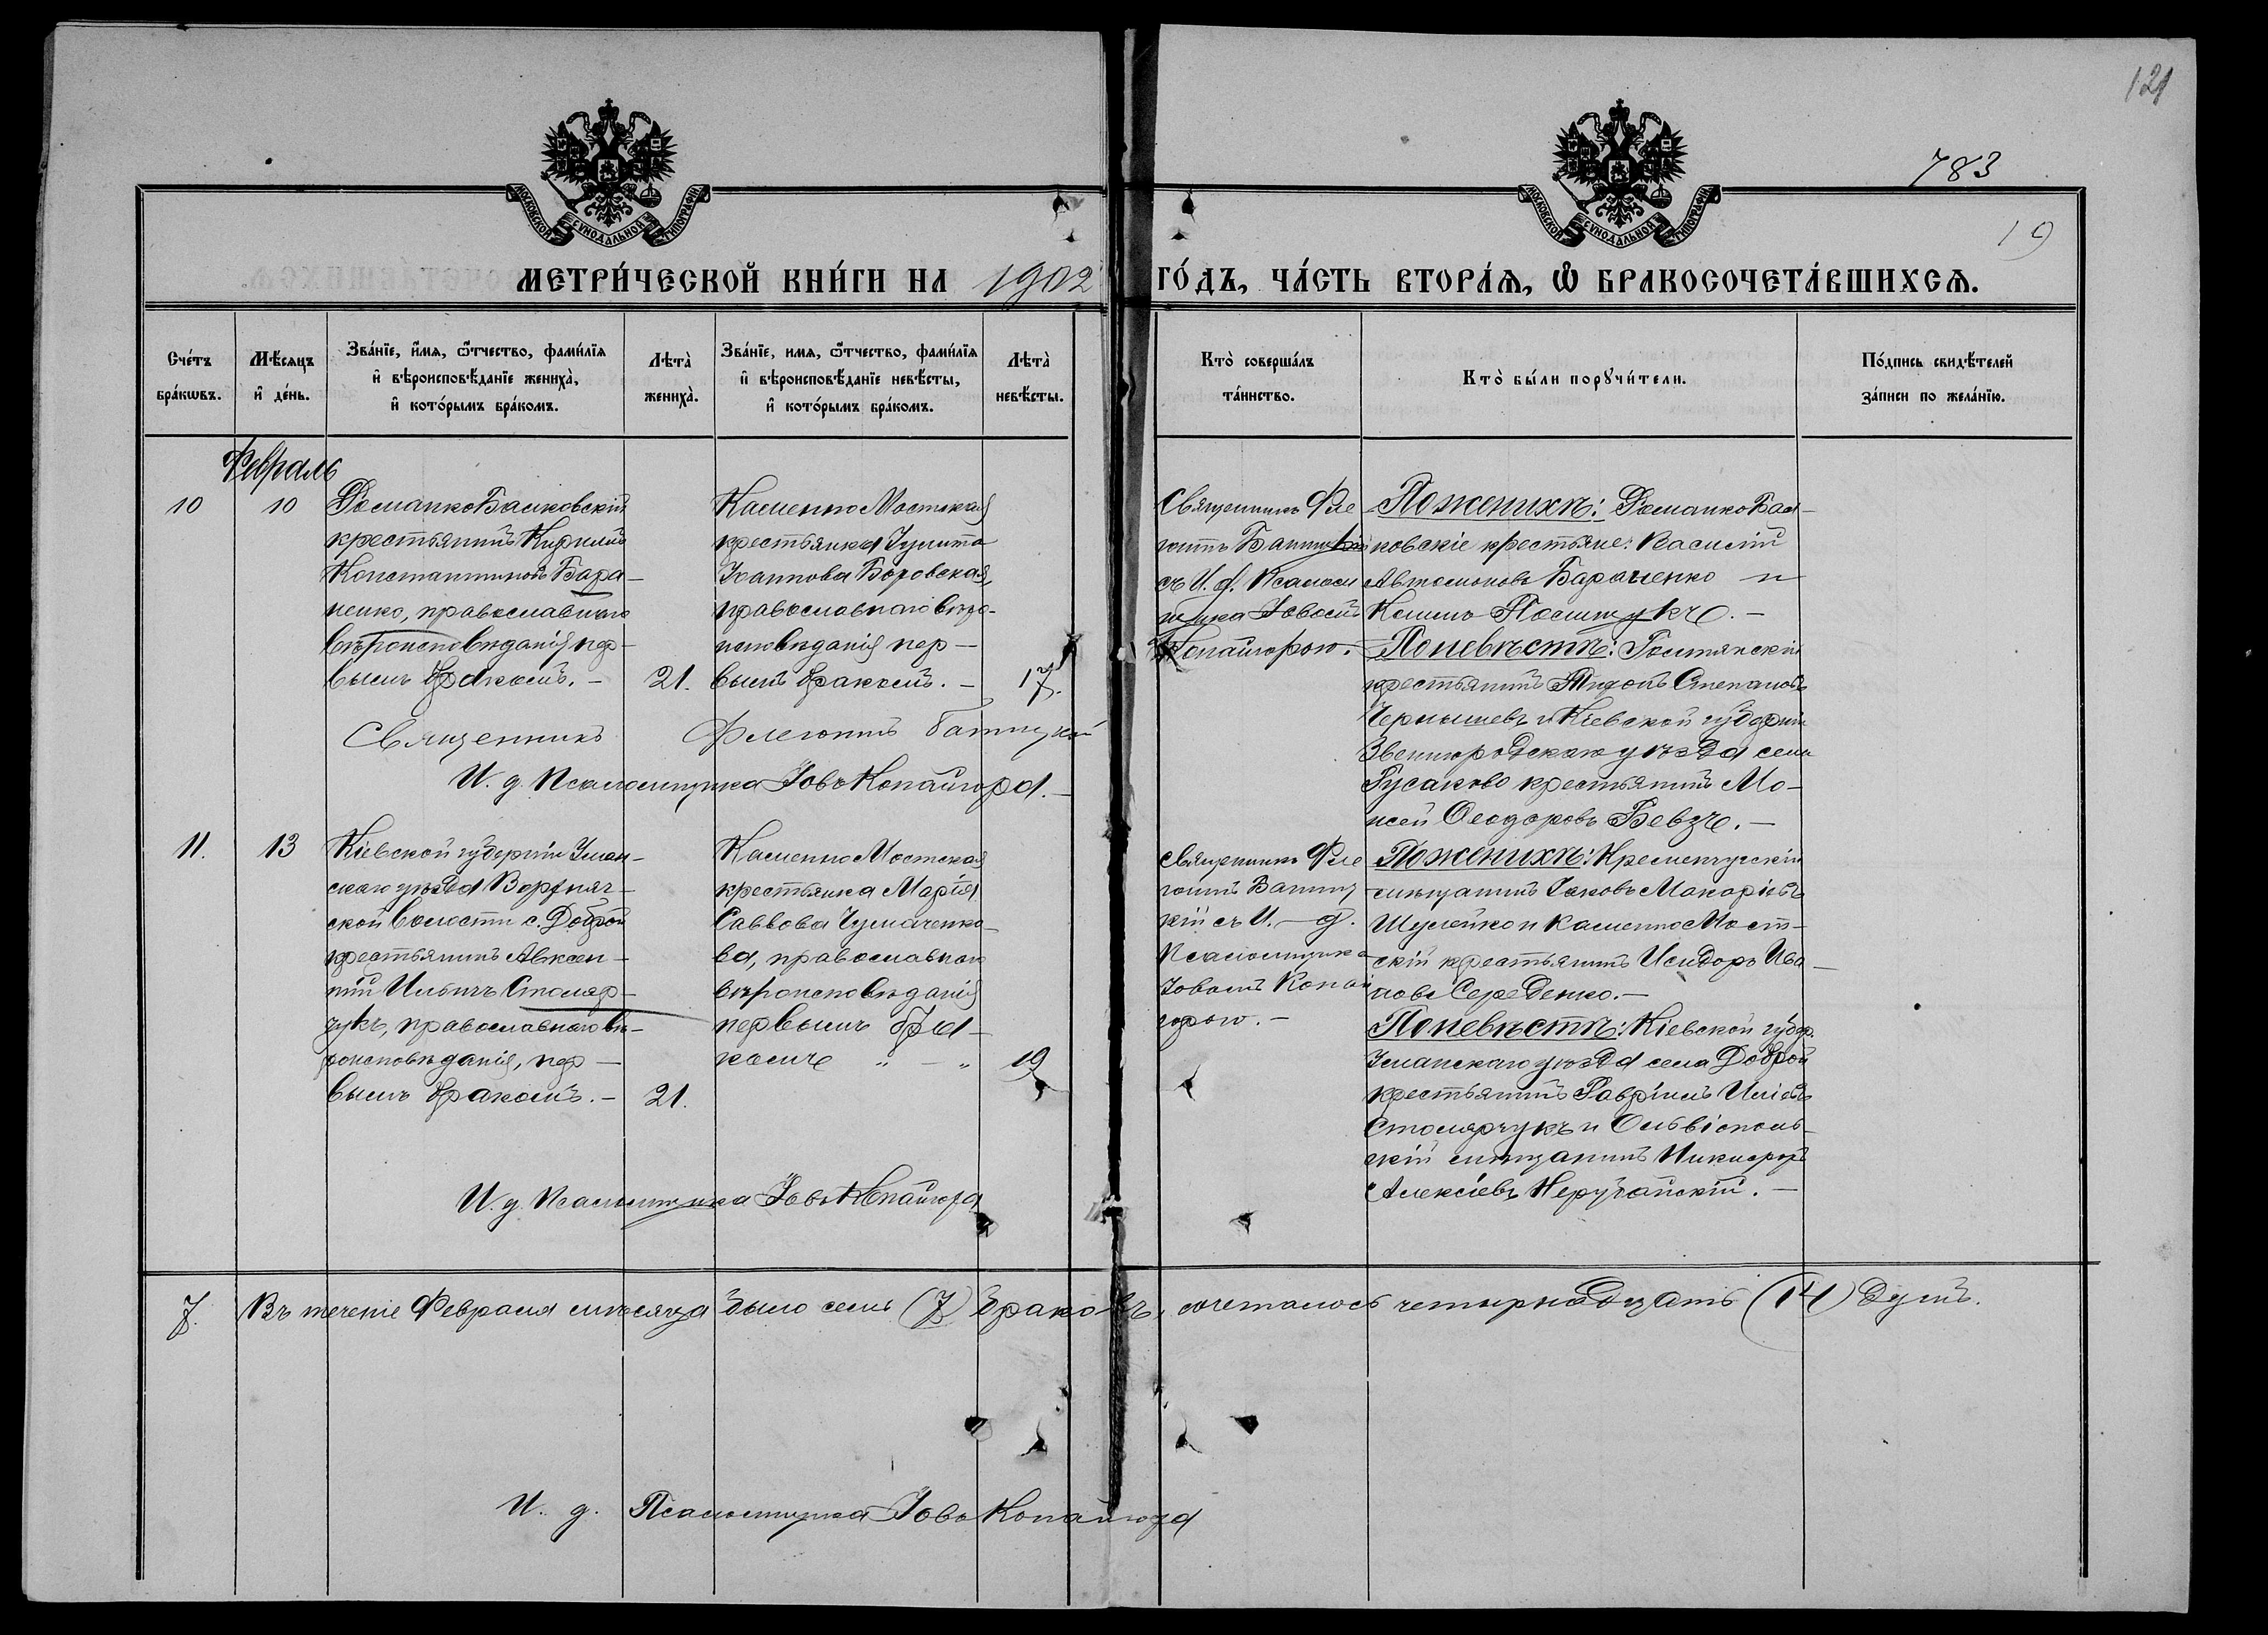 121
783
19
МОСКОВСКОЙ СУНОДАЛЬНОЙ ТИПОГРАФІИ
МОСКОВСКОЙ СУНОДАЛЬНОЙ ТИПОГРАФІИ
МЕТРИ́ЧЕСКОЙ КНИ́ГИ НА 1902 ГО́ДЪ, ЧА́СТЬ ВТОРА́Ѧ, Ѿ БРАКОСОЧЕТА́ВШИХСѦ.
Сче́тъ бра́кѡвъ.
Мѣ́сяцъ и҆ де́нь.
Зва́нїе, и҆́мѧ, ѻ҆́тчество, фами́лїѧ
и҆ вѣроисповѣ́данїе жениха̀,
и҆ кото́рымъ бра́комъ.
Лѣта̀ жениха̀.
Зва́нїе, имѧ, ѻ҆́тчество, фами́лїѧ
и҆ вѣроисповѣ́данїе невѣ́сты,
и҆ кото́рымъ бра́комъ.
Лѣта̀ невѣ́сты.
Кто̀ соверша́лъ та́инство.
Кто̀ бы́ли порꙋчи́тели.
По́дпись свидѣ́телей за́писи по жела́нїю.
Февраль
10
10
крестьянинъ Кирилъ
Константиновъ Бара-
ненко, православнаго
вѣроисповѣданія пер-
вымъ бракомъ. -
21.
КаменноМостская
крестьянка Іулита
Іоаннова Боровская,
православнаго вѣро-
исповѣданія пер-
вымъ бракомъ. -
17.
Священникъ Фле
гонтъ
съ И. д. Псалом
щика Іовомъ
Копайгорою.
По женихѣ:
ковскіе крестьяне: Василій
Автомоновъ Бараненко и
По невѣстѣ:
крестьянинъ Тихонъ Степановъ
Чернышевъ и Кіевской губерніи
Звенигородскаго уѣзда села
Гусаково крестьянинъ Мо-
исей Ѳеодоровъ Бевзъ. -
Священникъ Флегонтъ
И. д. Псаломщика Іовъ Копайгора. -
11.
13
Кіевской губерніи Уман-
скаго уѣзда
ской волости с. Доброй
крестьянинъ Авксен-
тій Ильичъ Столяр-
чукъ, православнаго вѣ-
роисповѣданія, пер-
вымъ бракомъ. -
21.
КаменноМостская
крестьянка Марія
Саввова Чумаченко-
ва, православнаго
вѣроисповѣданія
первымъ бра-
комъ „ - „
19
Священникъ Фле
гонтъ
кій съ И. - д.
Псаломщика
Іовомъ Копай
горою. -
По женихѣ: Кременчугскій
мѣщанинъ Іаковъ Макаріевъ
Шулейко и КаменноМост-
скій крестьянинъ Исидоръ Ива-
новъ Середенко. -
По невѣстѣ: Кіевской губер.
Уманскаго уѣзда села Доброй
крестьянинъ Гавріилъ Иліевъ
Столярчукъ и Ольвіополь-
скій мѣщанинъ Никифоръ
Алексіевъ
И. д. Псаломщика Іовъ Копайгора
7. Въ теченіе Февраля мѣсяца было семь (7) браковъ, сочеталось четырнадцать (14) душъ.
И. д. Псаломщика Іовъ Копайгора